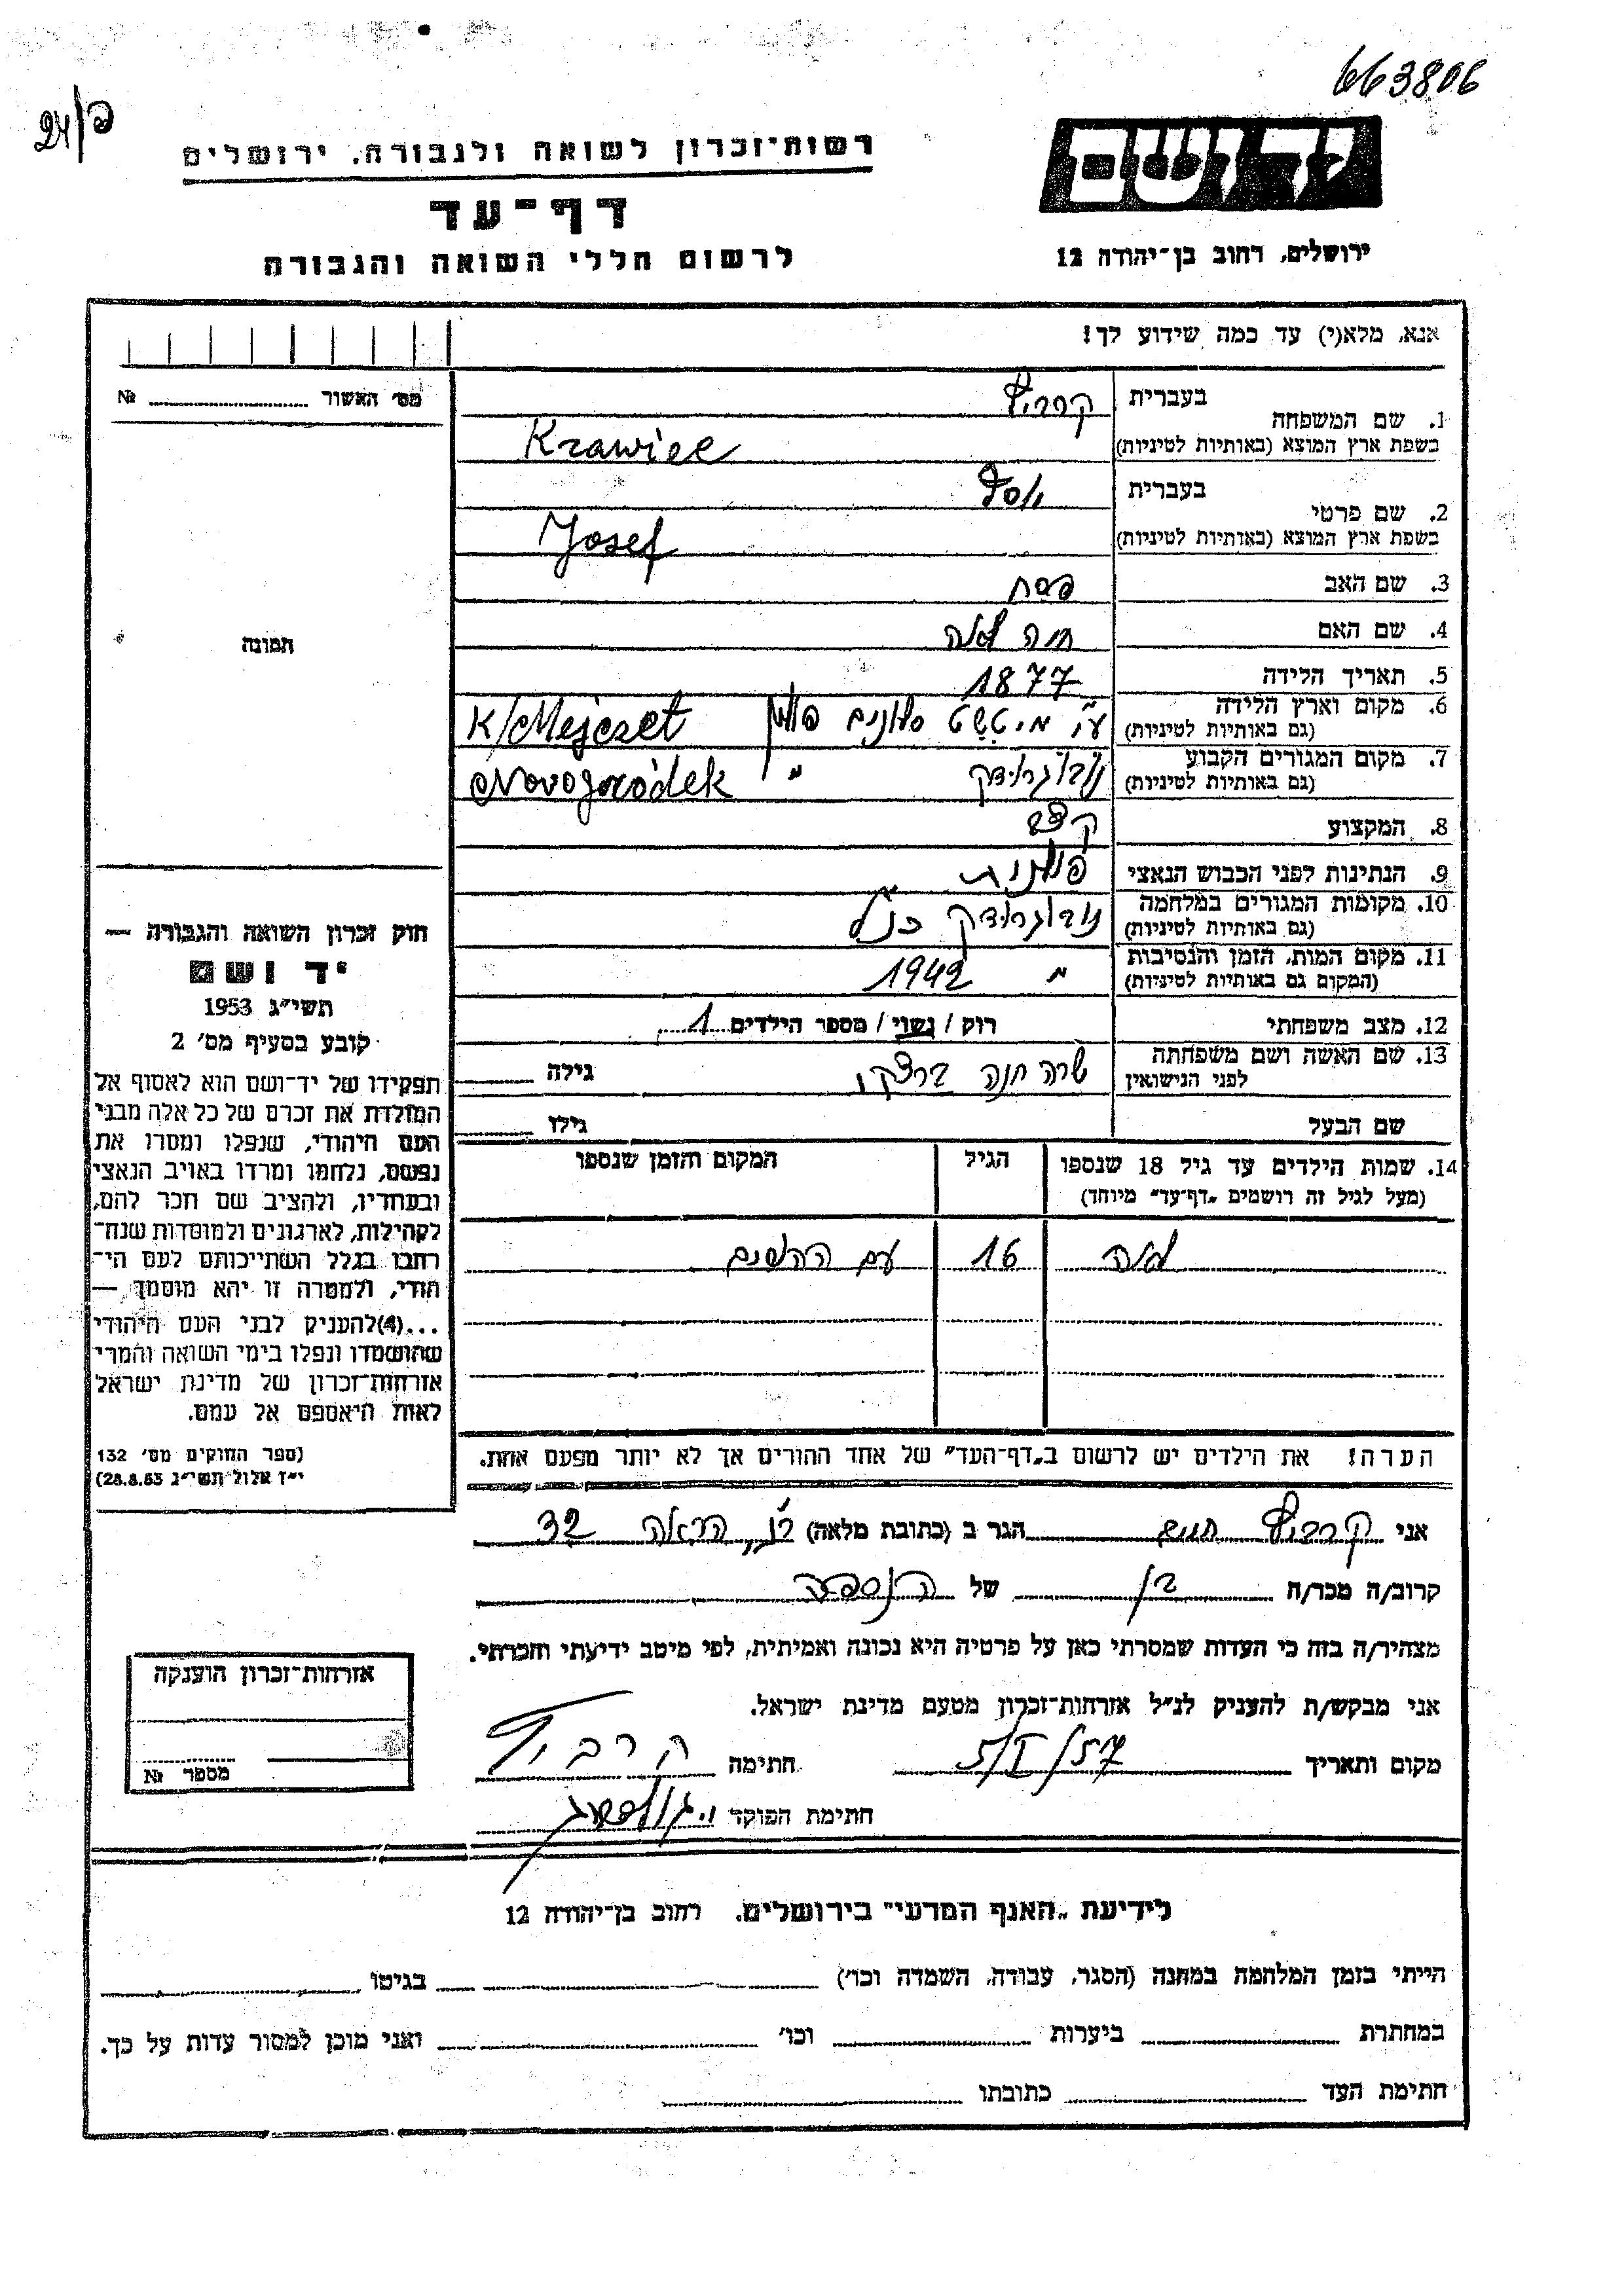 663806
24/פ
יד ושם
רשות־זכרון לשואה ולגבורה, ירושלים
דף־עד
לרשום חללי השואה והגבורה
ירושלים, רחוב בן־יהודה 12
אנא, מלא(י) עד כמה שידוע לך!
מס' האשור № 
1. שם המשפחה בעברית קרביץ
בשפת ארץ המוצא (באותיות לטיניות) Krawiec
2. שם פרטי בעברית יוסף
בשפת ארץ המוצא (באותיות לטיניות) Josef
3. שם האב פסח
4. שם האם חיה לאה
5. תאריך הלידה 1877
6. מקום וארץ הלידה (גם באותיות לטיניות) ע"י סלונים פולין K/Mejczet
7. מקום המגורים הקבוע (גם באותיות לטיניות) נובוגרודק " Novogródek
8. המקצוע קצב
9. הנתינות לפני הכבוש הנאצי פולנית
10. מקומות המגורים במלחמה (גם באותיות לטיניות) נובוגרודק כנ"ל
11. מקום המות, הזמן והנסיבות (המקום גם באותיות לטיניות) " 1942
12. מצב משפחתי רוק / נשוי / מספר הילדים 1
13. שם האשה ושם משפחתה לפני הנישואין שרה חנה גילה
שם הבעל גילו
14. שמות הילדים עד גיל 18 שנספו (מעל לגיל זה רושמים „דף־עד" מיוחד) הגיל המקום והזמן שנספו
לאה 16 עם ההורים
הערה! את הילדים יש לרשום ב„דף־העד" של אחד ההורים אך לא יותר מפעם אחת.
תמונה
חוק זכרון השואה והגבורה —
יד ושם
תשי"ג 1953
קובע בסעיף מס' 2
תפקידו של יד־ושם הוא לאסוף אל
המולדת את זכרם של כל אלה מבני
העם היהודי, שנפלו ומסרו את
נפשם, נלחמו ומרדו באויב הנאצי
ובעוזריו, ולהציב שם וזכר להם,
לקהילות, לארגונים ולמוסדות שנח־
רבו בגלל השתייכותם לעם הי־
הודי, ולמטרה זו יהא מוסמך —
...(4) להעניק לבני העם היהודי
שהושמדו ונפלו בימי השואה והמרי
אזרחות־זכרון של מדינת ישראל
לאות היאספם אל עמם.
(ספר החוקים מס' 132
י"ז אלול תשי"ג 28.8.53)
אני קרביץ חיים הגר ב (כתובת מלאה) 32
קרוב/ה מכר/ה בן של הנספה
מצהיר/ה בזה כי העדות שמסרתי כאן על פרטיה היא נכונה ואמיתית, לפי מיטב ידיעתי והכרתי.
אני מבקש/ת להעניק לנ"ל אזרחות־זכרון מטעם מדינת ישראל.
מקום ותאריך 5/I/57 חתימה קרביץ
חתימת הפוקד
אזרחות־זכרון הוענקה
מספר №
לידיעת „האגף המדעי" בירושלים, רחוב בן־יהודה 12
הייתי בזמן המלחמה במחנה (הסגר, עבודה, השמדה וכו') בגיטו
במחתרת ביערות וכו' ואני מוכן למסור עדות על כך.
חתימת העד כתובתו